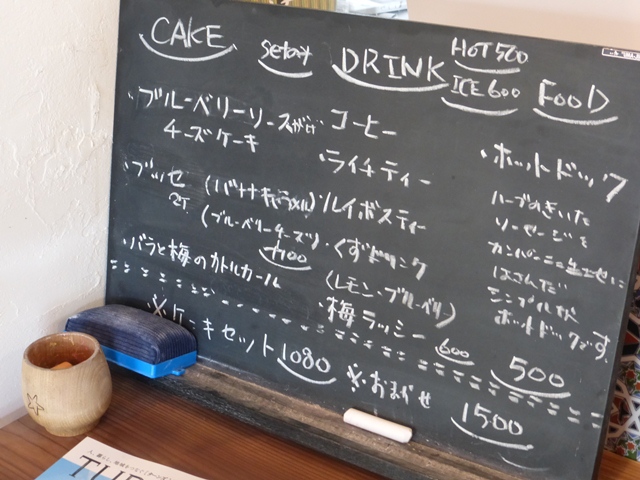 CAKE
ブルーベリーソースがけ
チーズケーキ
ブッセ (バナナキャラメル)
2ケ (ブルーベリーチーズ)
バラと梅のカトルカール
※ケーキセット 1080
DRINK
HOT 500
ICE 600
・コーヒー
・ライチティー
・ルイボスティー
・くずドリンク
(レモン・ブルーベリー)
・梅ラッシー
600
※おまかせ
1500
FOOD
・ホットドック
ハーブのきいた
ソーセージを
はさんだ
シンプルな
ホットドックです。
500